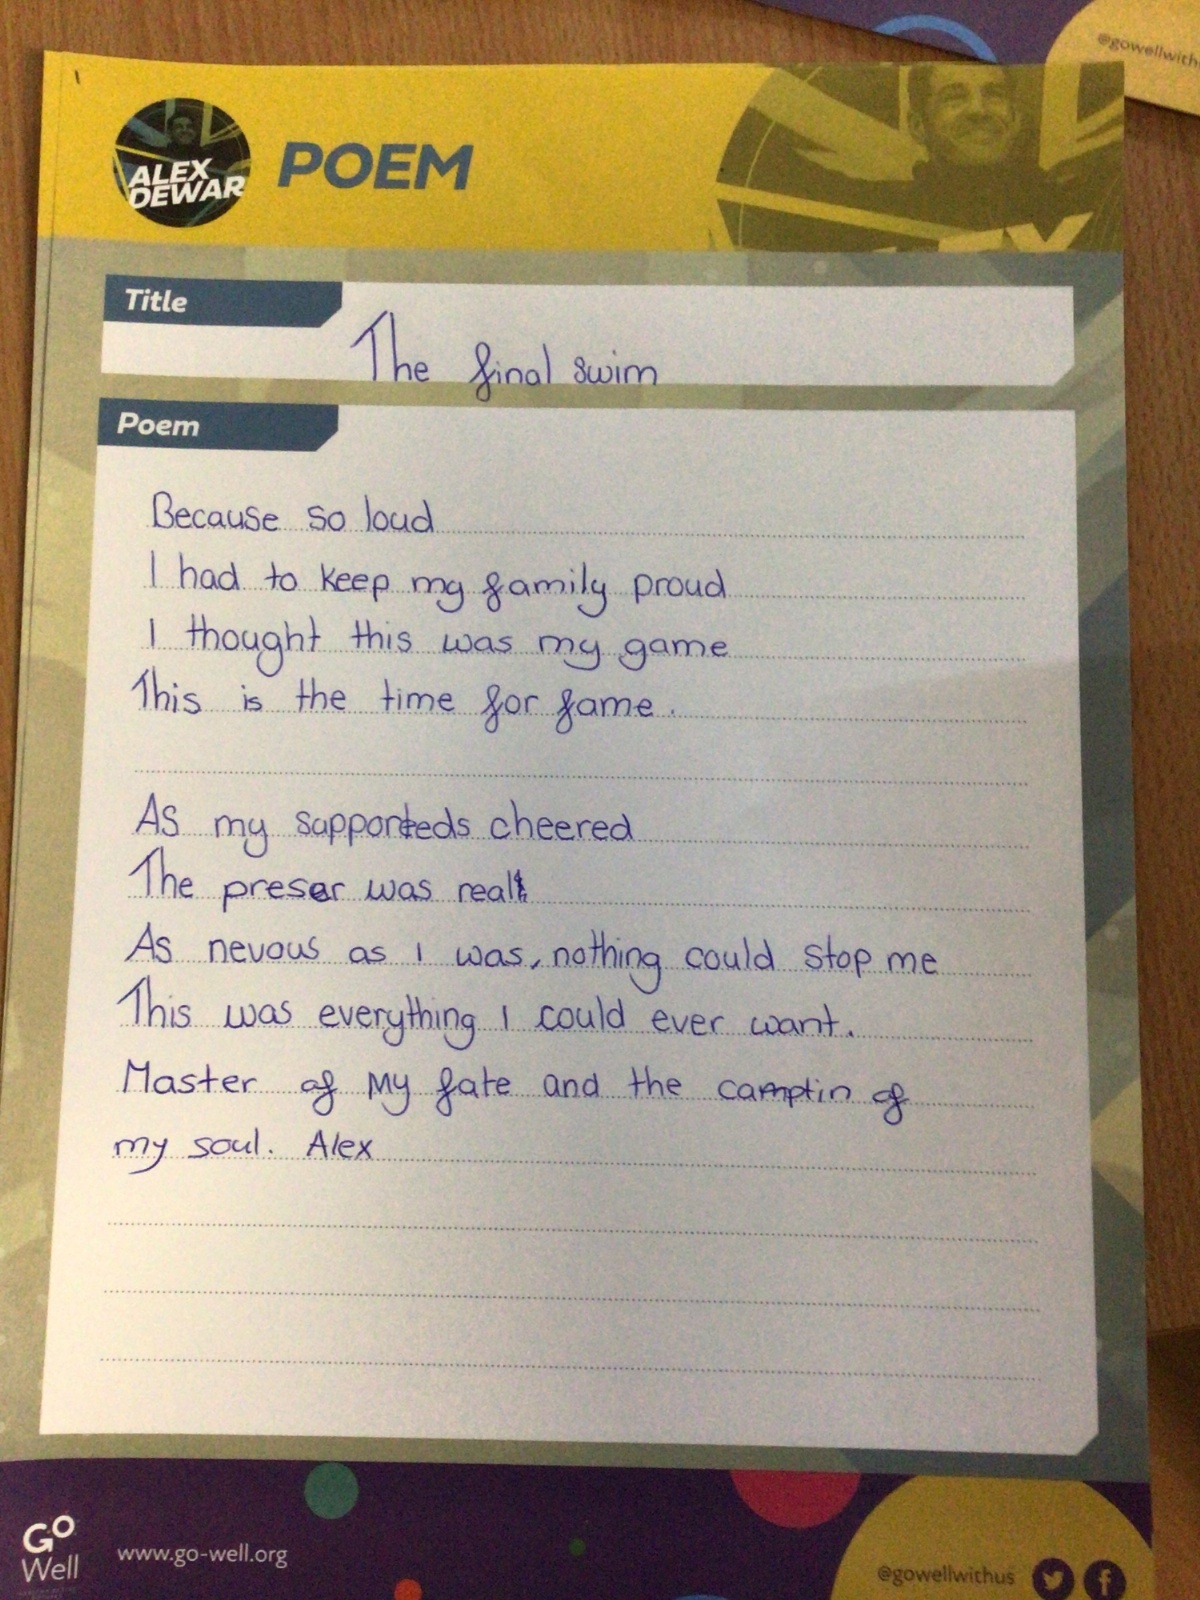 @gowellwith
ALEX
DEWAR
POEM
Title
The final swim
Poem
Because so loud
I had to keep my family proud
I thought this was my game
This is the time for fame.
As my supporteds cheered
The preser was real
As nevous as I was, nothing could stop me
This was everything I could ever want.
Master of My fate and the camptin of
my soul. Alex
Go
Well
www.go-well.org
@gowellwithus